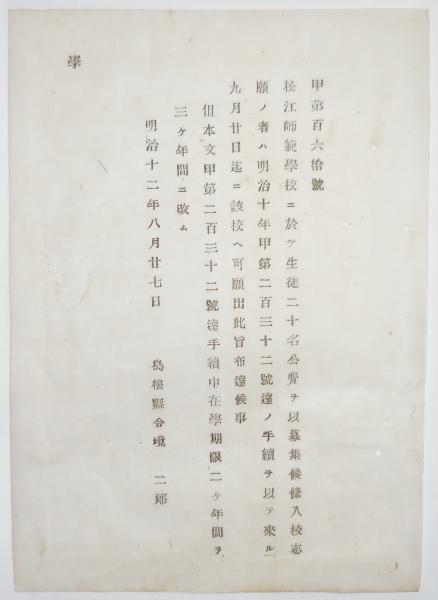 甲第百六拾號
松江師範學校ニ於テ生徒二十名公費ヲ以募集候條入校志
願ノ者ハ明治十年甲第二百三十二號達ノ手續ヲ以テ來ル
九月廿日迄ニ該校ヘ可願出此旨布達候事
但本文甲第二百三十二號達手續中在學期限二ケ年間ヲ
三ケ年間ニ改ム
明治十二年八月廿七日 島根縣令境 二郎
學